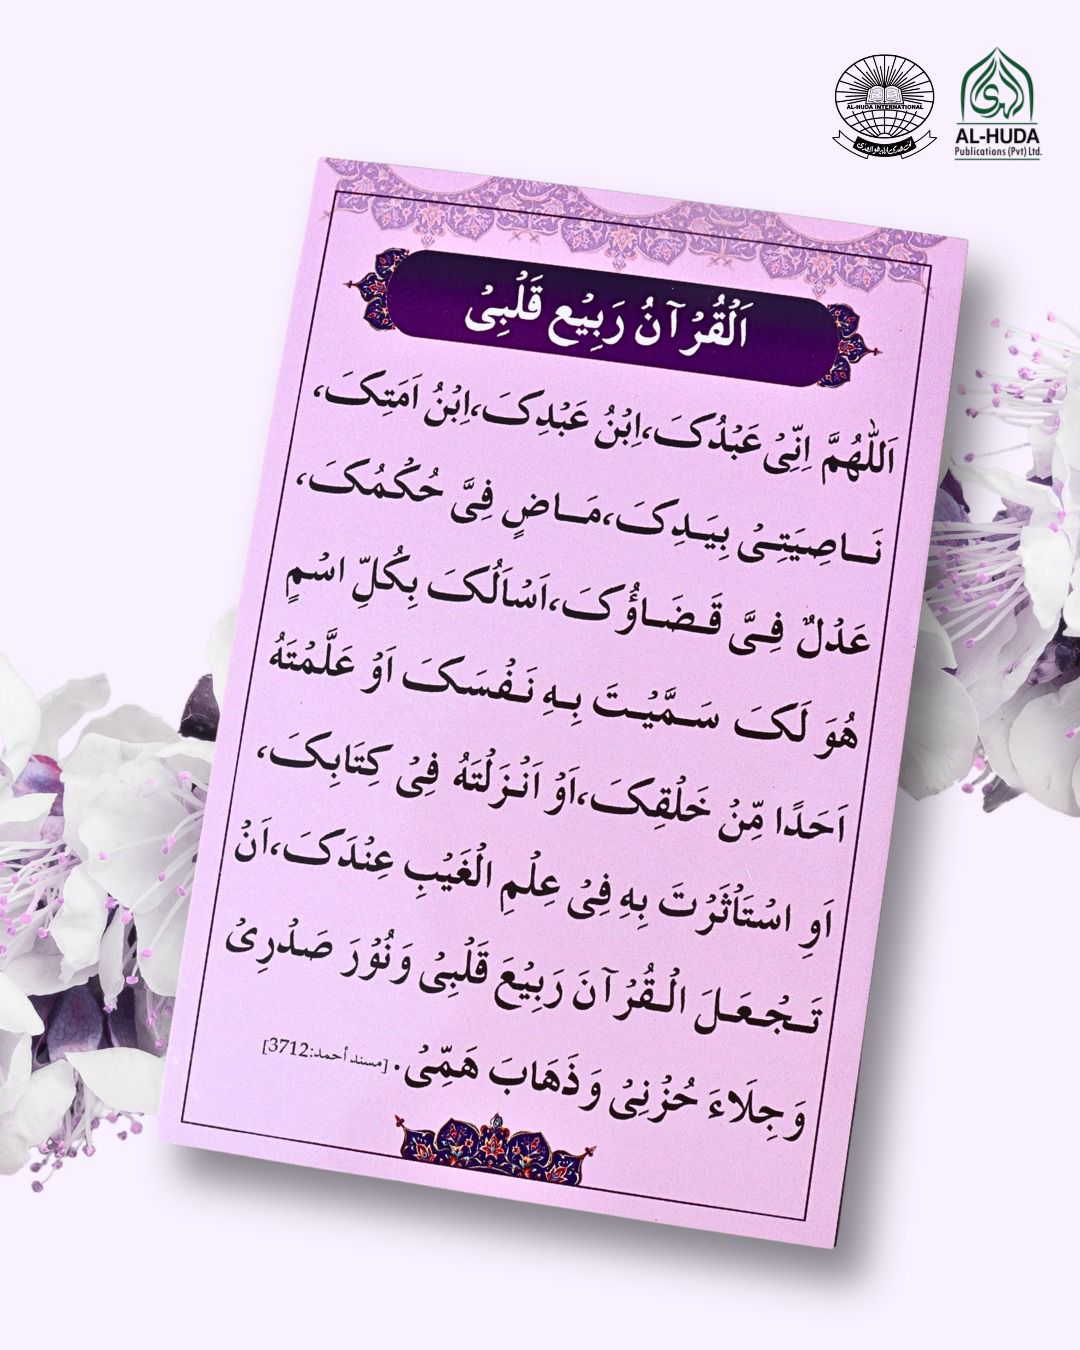 AL-HUDA INTERNATIONAL
AL-HUDA
Publications (Pvt) Ltd.
اَلْقُرْآنُ رَبِيْع قَلْبِيْ
اَللّٰهُمَّ اِنِّيْ عَبْدُكَ،اِبْنُ عَبْدِكَ،اِبْنُ اَمَتِكَ،
نَاصِيَتِيْ بِيَدِكَ،مَاضٍ فِيَّ حُكْمُكَ،
عَدْلٌ فِيَّ قَضَاؤُكَ،اَسْاَلُكَ بِكُلِّ اسْمٍ
هُوَ لَكَ سَمَّيْتَ بِهِ نَفْسَكَ اَوْ عَلَّمْتَهُ
اَحَدًا مِّنْ خَلْقِكَ،اَوْ اَنْزَلْتَهُ فِيْ كِتَابِكَ،
اَوِ اسْتَاْثَرْتَ بِهِ فِيْ عِلْمِ الْغَيْبِ عِنْدَكَ،اَنْ
تَجْعَلَ الْقُرْآنَ رَبِيْعَ قَلْبِيْ وَنُوْرَ صَدْرِيْ
وَجِلَاءَ حُزْنِيْ وَذَهَابَ هَمِّيْ. [مسند أحمد:3712]